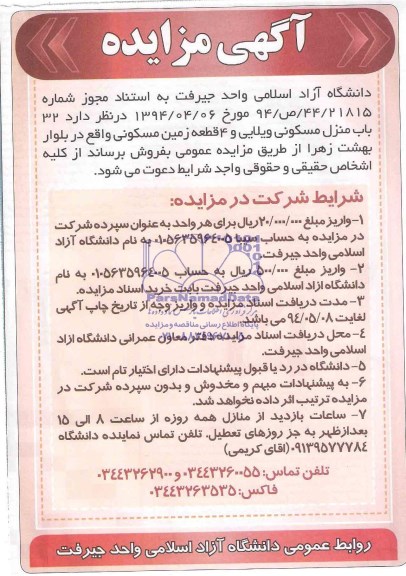 آگهی مزایده
دانشگاه آزاد اسلامی واحد جیرفت به استناد مجوز شماره
۴۴/۲۱۸۱۵/ص/۹۴ مورخ ۱۳۹۴/۰۴/۰۶ درنظر دارد ۳۲
باب منزل مسکونی ویلایی و ۴قطعه زمین مسکونی واقع در بلوار
بهشت زهرا از طریق مزایده عمومی بفروش برساند از کلیه
اشخاص حقیقی و حقوقی واجد شرایط دعوت می شود.
شرایط شرکت در مزایده:
۱-واریز مبلغ ۲۰/۰۰۰/۰۰۰ریال برای هر واحد به عنوان سپرده شرکت
در مزایده به حساب سیبا ۰۱۰۵۶۳۵۹۶۴۰۰۵ به نام دانشگاه آزاد
اسلامی واحد جیرفت.
۲- واریز مبلغ ۵۰۰/۰۰۰ ریال به حساب ۰۱۰۵۶۳۵۹۶۴۰۰۵ به نام
دانشگاه ازاد اسلامی واحد جیرفت بابت خرید اسناد مزایده.
ParsNamadData
۳- مدت دریافت اسناد مزایده و واریز وجه از تاریخ چاپ آگهی
لغایت ۹۴/۰۵/۰۸ می باشد.
پایگاه اطلاع رسانی مناقصه و مزایده
۴- محل دریافت اسناد مزایده دفتر معاون عمرانی دانشگاه ازاد
اسلامی واحد جیرفت.
۵- دانشگاه در رد یا قبول پیشنهادات دارای اختیار تام است.
۶- به پیشنهادات مبهم و مخدوش و بدون سپرده شرکت در
مزایده ترتیب اثر داده نخواهد شد.
۷- ساعات بازدید از منازل همه روزه از ساعت ۸ الی ۱۵
بعدازظهر به جز روزهای تعطیل. تلفن تماس نماینده دانشگاه
۰۹۱۳۹۵۷۷۷۸۴(اقای کریمی)
تلفن تماس: ۰۳۴۴۳۲۶۰۰۵۵ و ۰۳۴۴۳۲۶۲۹۰۰
فاکس: ۰۳۴۴۳۲۶۳۵۳۵
روابط عمومی دانشگاه آزاد اسلامی واحد جیرفت